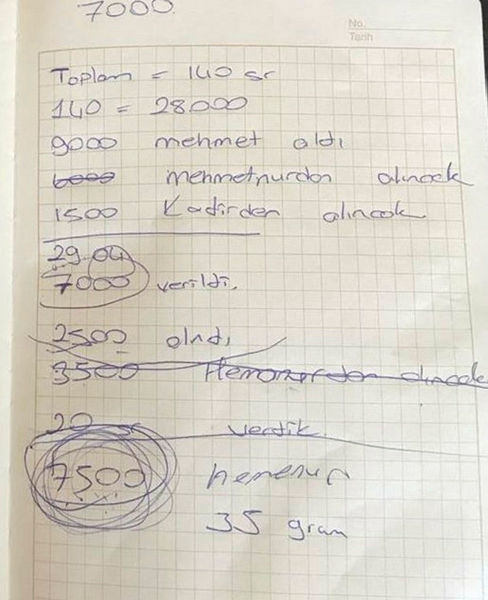 7000
No.
Tarih
Toplam = 140 gr
140 = 28000
9000 mehmet aldı
6000 mehmetnurdan alıncak
1500 Kadirden alıncak
29.04
7000 verildi.
2500 alndı
3500 alıncak
20 gr verdik
7500
35 gram